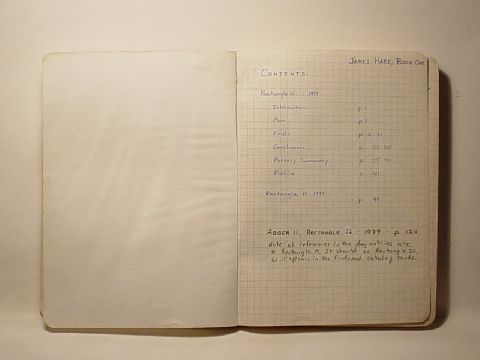 JAMES HARE, BOOK ONE
CONTENTS:
Rectangle 12 - 1977
Introduction p. 1
Plan p. 1
Finds p. 2-
Conclusion p.
Pottery Summary p.
p. 41
Rectangle 11 1977
p.
ADGER 11, RECTANGLE 22 - 1979 - p. 124
Note: all references in the day entries are
to Rectangle 19. It should be Rectangle 22,
as it appears in the finds and catalog cards.